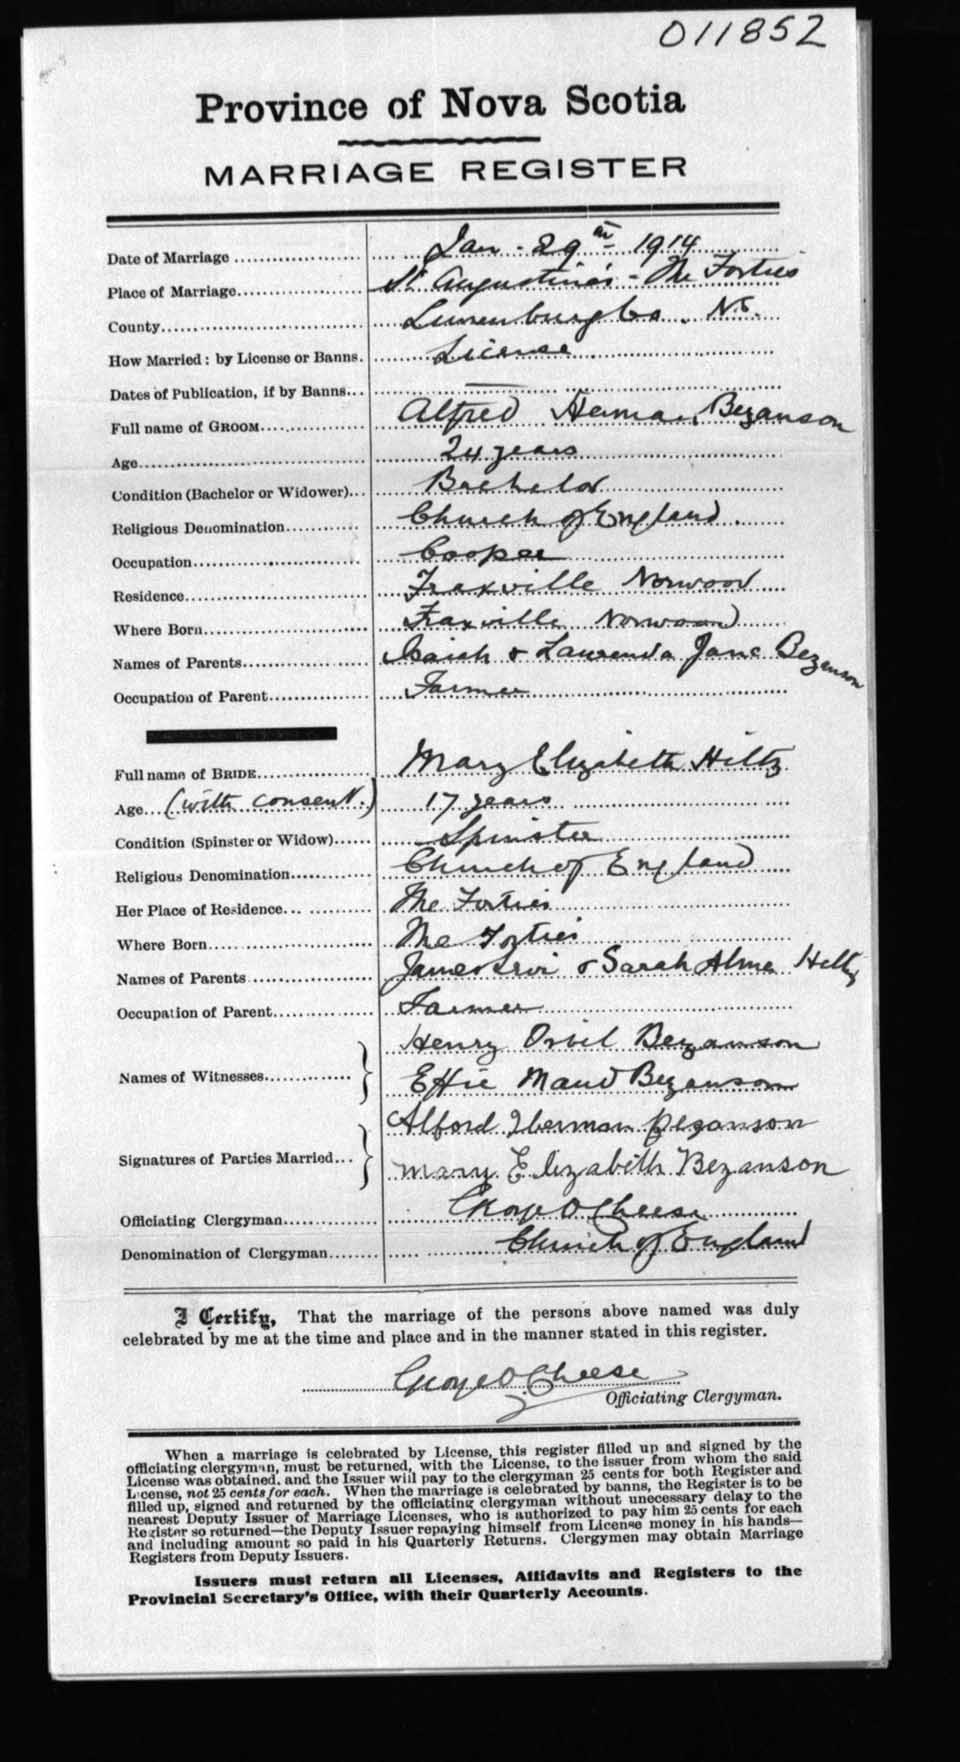 011852
Province of Nova Scotia
MARRIAGE REGISTER
Date of Marriage Jan - 29th 1914
Place of Marriage St Augustine's - The Forties
County Lunenburg Co. N.S.
How Married: by License or Banns. License
Dates of Publication, if by Banns
Full name of GROOM Alfred Herman Bezanson
Age 24 years
Condition (Bachelor or Widower) Bachelor
Religious Denomination Church of England.
Occupation Cooper
Residence Fraxville Norwood
Where Born Fraxville Norwood
Names of Parents Isaiah & Laurenda Jane Bezanson
Occupation of Parent Farmer
Full name of BRIDE Mary Elizabeth Hiltz
Age (with consent.) 17 years
Condition (Spinster or Widow) Spinster
Religious Denomination Church of England
Her Place of Residence The Forties
Where Born The Forties
Names of Parents James & Sarah Alma Hiltz
Occupation of Parent Farmer
Henry Orvil Bezanson
Names of Witnesses
Effie Maud Bezanson
Alford Herman Bezanson
Signatures of Parties Married
Mary Elizabeth Bezanson
Officiating Clergyman George O Cheese
Denomination of Clergyman Church of England
I Certify, That the marriage of the persons above named was duly
celebrated by me at the time and place and in the manner stated in this register.
George O Cheese
Officiating Clergyman.
When a marriage is celebrated by License, this register filled up and signed by the
officiating clergyman, must be returned, with the License, to the issuer from whom the said
License was obtained, and the Issuer will pay to the clergyman 25 cents for both Register and
License, not 25 cents for each. When the marriage is celebrated by banns, the Register is to be
filled up, signed and returned by the officiating clergyman without unnecessary delay to the
nearest Deputy Issuer of Marriage Licenses, who is authorized to pay him 25 cents for each
Register so returned—the Deputy Issuer repaying himself from License money in his hands—
and including amount so paid in his Quarterly Returns. Clergymen may obtain Marriage
Registers from Deputy Issuers.
Issuers must return all Licenses, Affidavits and Registers to the
Provincial Secretary's Office, with their Quarterly Accounts.